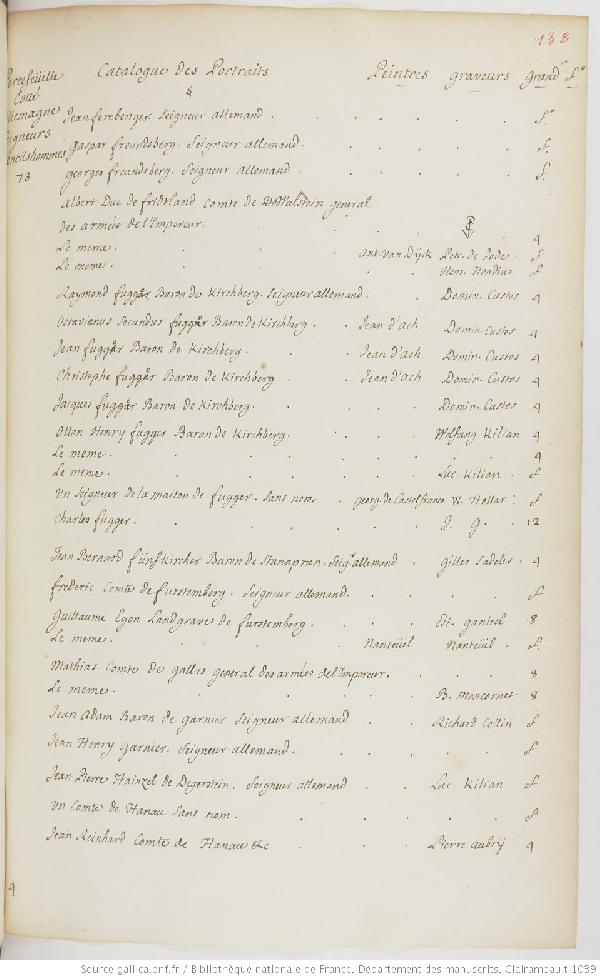 138
Portefeüille Catalogue des Portraits Peintres graveurs grandr fo
Cotté §
allemagne Jean ferebenger Seigneur allemand. fo
Seigneurs gaspar freundsberg. Seigneur allemand. f.
gentilshommes georges freundsberg. Seigneur allemand. f.
73
Albert Duc de fridtland Comte de Wallstein general
des armées de l'Empereur. 4
Le meme. Ant. van Dÿck Petr. de Jode. f
Le meme. Henr. Hondius f
Raymond fuggar Baron de Kirchberg. Seigneur allemand. Domin. Custos 4
Octavienus Secundus fuggar Baron de Kirchberg. Jean d'ach Domin. Custos 4
Jean fuggar Baron de Kirchberg. Jean d'ach Domin. Custos 4
Christophe fuggar Baron de Kirchberg Jean d'ach Domin. Custos 4
Jacques fuggar Baron de Kirchberg. Domin. Custos 4
Otton Henry fugger Baron de Kirchberg. Wolfang Kilian 4
Le meme. 4
Le meme. Luc. Kilian. f
un Seigneur de la maison de fugger. sans nom. georg. de Castelfranco W. Hollar. f
Charles fugger. J. G. 12
Jean Bernard fünfkircher Baron de Stanapran. Seigr allemand. Gilles Sadeler. 4
frederic Comte de furstemberg. Seigneur allemand. f
Guillaume Egon Landgrave de furstemberg. Et. gantrel 8
Le meme. Nanteüil Nanteüil. f.
Mathias Comte de gallas general des armées de l'Empereur. 8
Le meme. B. Moncornet 8
Jean Adam Baron de garnier Seigneur allemand Richard Collin f
Jean Henry garnier. Seigneur allemand. f
Jean Pierre Hainzel de Degerstein. Seigneur allemand Luc Kilian f
un Comte de Hanau sans nom. f
Jean Reinhard Comte de Hanau &c Pierre aubrÿ 4
4
Source gallica.bnf.fr / Bibliothèque nationale de France. Département des manuscrits. Clairambault 1039